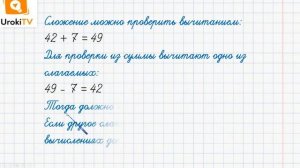 UrokiTV
Сложение можно проверить вычитанием:
42 + 7 = 49
Для проверки из суммы вычитают одно из
слагаемых:
49 - 7 = 42
Тогда должно
Если другое сла
вычислениях до